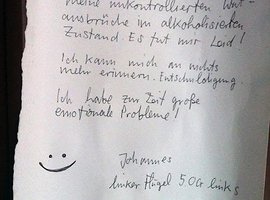 meine unkontrollierten Wut-
ausbrüche im alkoholisierten
Zustand. Es tut mir Leid!
Ich kann mich an nichts
mehr erinnern. Entschuldigung.
Ich habe zur Zeit große
emotionale Probleme!
Johannes
linker Flügel 5.OG links